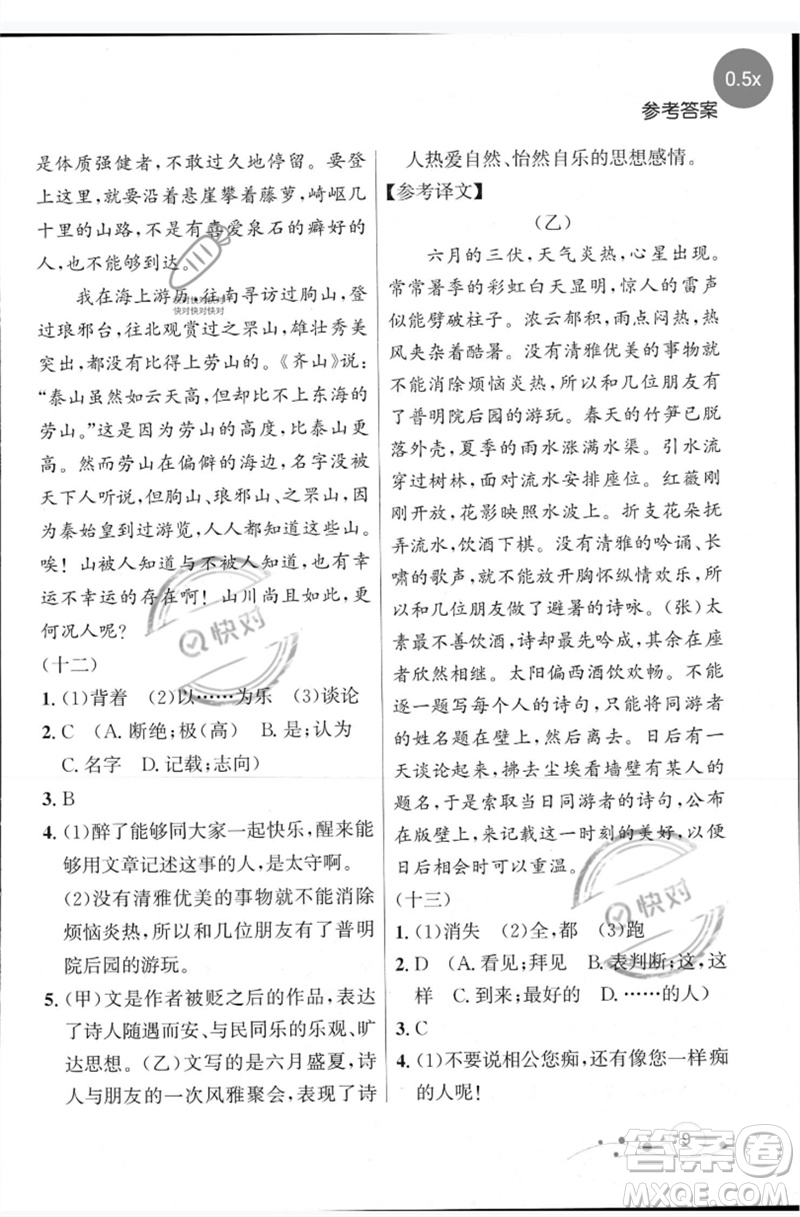 0.5x
参考答案
是体质强健者，不敢过久地停留。要登
上上面这里，要沿着悬崖攀着藤萝，崎岖几
十里的山路，不是有喜爱泉石的癖好的
人，也不能够到达。
我在海上游历，往南寻访过朐山，登
过琅邪台，往北观赏过之罘山，雄壮秀美
突出，都没有比得上劳山的。《齐山》说：
“泰山虽然如云天高，但比不上东海的
劳山。”这是因为劳山的高度，比泰山更
高。然而劳山在偏僻的海边，名字没被
天下人听说，但朐山、琅邪山、之罘山，因
为秦始皇到过游览，人人都知道这些山。
唉！山被人知道与不被人知道，也是有
幸运与不幸运的存在啊！山川尚且如此，更
何况人呢？
(十二)
1. (1)背着 (2)以……为乐 (3)谈论
2. C (A. 断绝;极(高) B. 是;认为
C. 名字 D. 记载;志向)
3. B
4. (1)醉了能够同大家一起快乐，醒来能
够用文章记述这事的人，是太守啊。
(2)没有清雅优美的事物就不能消除
烦恼炎热，所以和几位朋友有了普明
院后园的游玩。
5. (甲)文是作者被贬之后的作品，表达
了诗人随遇而安、与民同乐的乐观、旷
达思想。(乙)文写的是六月盛夏，诗
人与朋友的一次风雅聚会，表现了诗
人热爱自然、怡然自乐的思想感情。
【参考译文】
(乙)
六月的三伏，天气炎热，心星出现。
常常暑季的彩虹白天显明，惊人的雷声
似能劈破柱子。浓云郁积，雨点闷热，热
风夹杂着酷暑。没有清雅优美的事物就
不能消除烦恼炎热，所以和几位朋友有
了普明院后园的游玩。春天的竹笋已脱
落外壳，夏季的雨水涨满水渠。引水流
穿过树林，面对流水安排座位。红薇刚
刚开放，花影映照水面。折支花朵拨
弄流水，饮酒下棋。没有清雅的吟诵、长
啸的歌声，就不能放开胸怀纵情欢乐，所
以和几位朋友就有了避暑的诗咏。(张)太
素最不善饮酒，诗却第一个写成，在座
者欣然相继。太阳偏西酒饮欢畅。不能
一一题写每个人的诗句，只能将同游者
的姓名题在壁上，然后离去。日后有一
天谈论起来，拂去尘埃看墙壁有某人的
题名，于是索取当日同游者的诗句，公布
在版壁上，来比较这一时刻的美好，以便
日后相会时可以重温。
(十三)
1. (1)消失 (2)全，都 (3)跑
2. D (A. 看见;拜见 B. 表判断;这，这
样 C. 到来;最好的 D. ……的人)
3. C
4. (1)不要说相公您痴，还有像您一样痴
的人呢！
快对
快对
9
答案圈
MXQE.COM